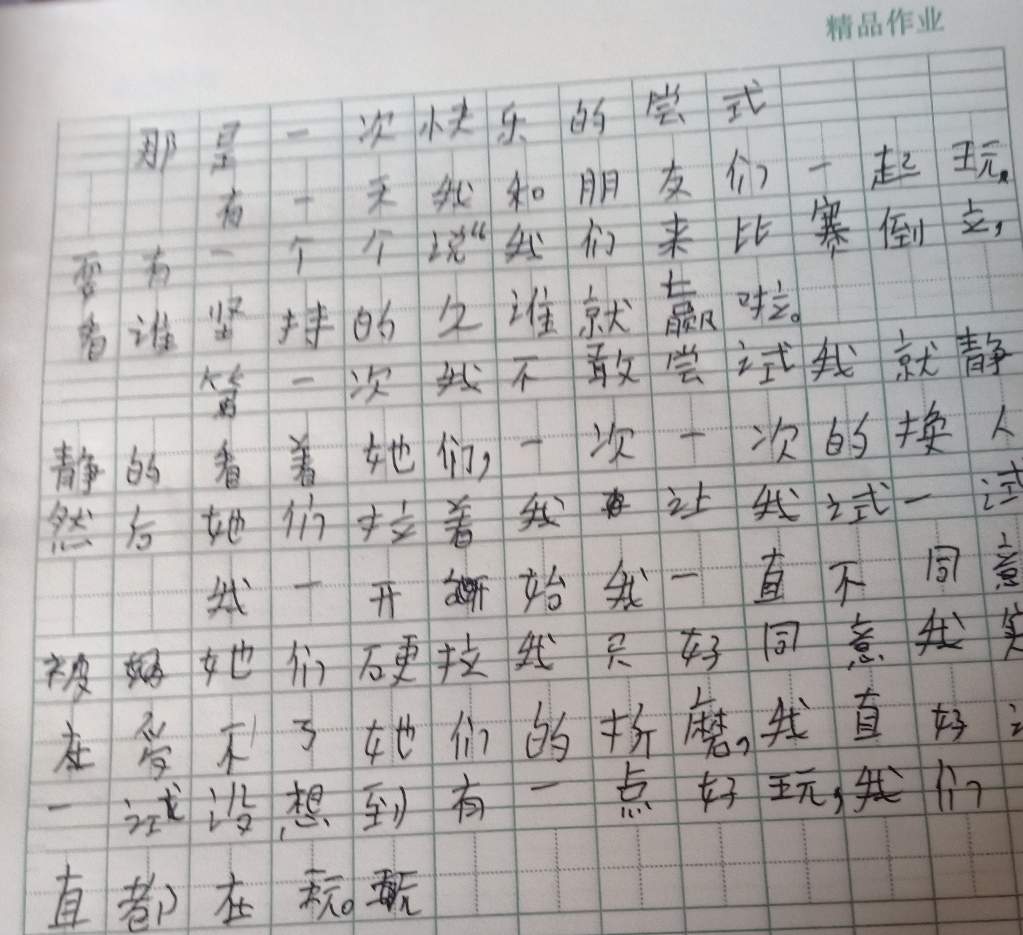 精品作业
那是一次快乐的尝式
有一天我和朋友们一起玩。
要有一个个说“我们来比赛倒立,
看谁坚持的久谁就赢啦。
第一次我不敢尝试我就静
静的看着她们,一次一次的换人
然后她们拉着我让我试一试
我一开始我一直不同意
被她们硬拉我只好同意我实
在受不了她们的折磨,我直好
一试没想到有一点好玩,我们
直都在玩。